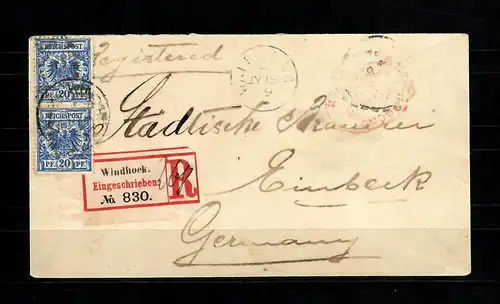 REICHSPOST
PF. 20 PF.
REICHSPOST
PF. 20 PF.
Registered
Städtische Brauerei
Einbeck
Germany
Windhoek.
Eingeschrieben.
No. 830.
R